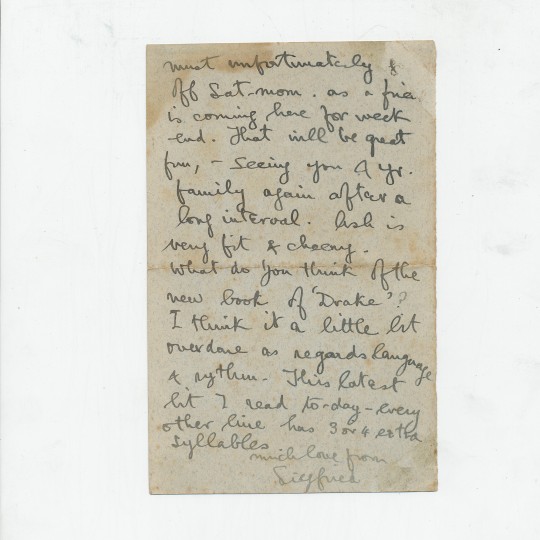 must unfortunately &
off Sat-morn. as a frie
is coming here for week
-end. That will be great
fun, - seeing you & yr.
family again after a
long interval. Ash is
very fit & cheery.
What do you think of the
new book of 'Drake'?
I think it a little bit
overdone as regards language
& rythm. This latest
bit I read to-day - every
other line has 3 or 4 extra
syllables
much love from
Siegfried